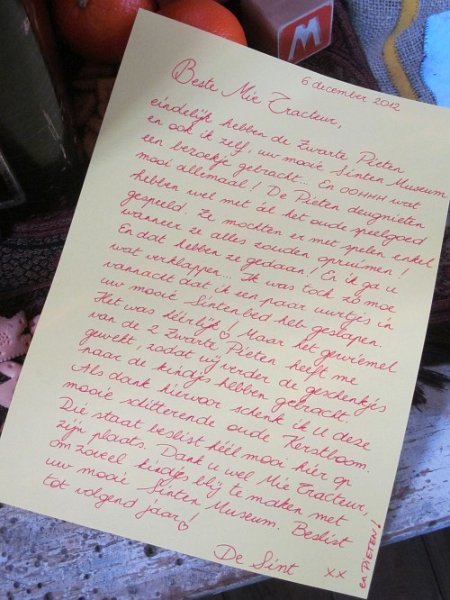 M
6 december 2012
Beste Mie Tracteur,
eindelijk hebben de Zwarte Pieten
en ook ik zelf, uw mooie Sinten Museum
een bezoekje gebracht... En OOHHH wat
mooi allemaal! De Pieten deugnieten
hebben wel met ál het oude speelgoed
gespeeld. Ze mochten er met spelen enkel
wanneer ze alles zouden opruimen!
En dat hebben ze gedaan! En ik ga u
wat verklappen... Ik was toch zo moe
vannacht dat ik een paar uurtjes in
uw mooie Sintenbed heb geslapen.
Het was héérlijk! Maar het gewiemel
van de 2 Zwarte Pieten heeft me
gewekt, zodat wij verder de geschenkjes
naar de kindjes hebben gebracht.
Als dank hiervoor schenk ik U deze
mooie schitterende oude Kerstboom.
Die staat beslist héél mooi hier op
zijn plaats. Dank u wel Mie Tracteur,
om zoveel kindjes blij te maken met
uw mooie Sinten Museum. Beslist
tot volgend jaar♡
De Sint xx
en PIETEN!